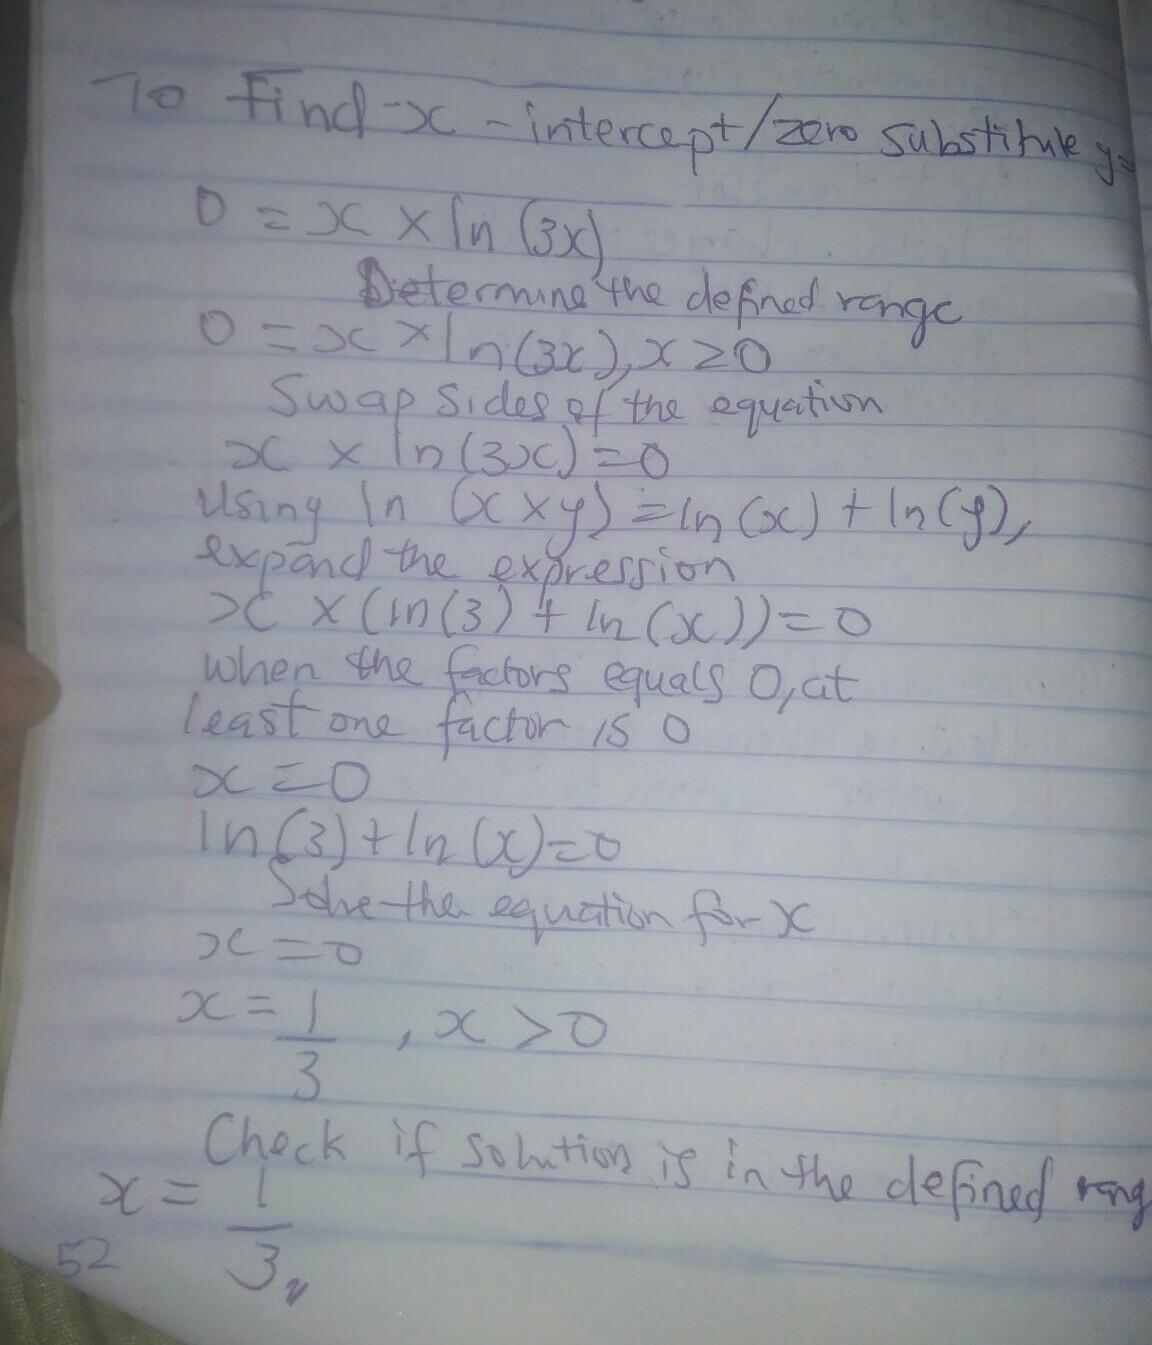 To Find x - intercept/zero substitute y=
0 = x × ln (3x)
Determine the defined range
0 = x × ln(3x), x ≥ 0
Swap sides of the equation
x × ln(3x) = 0
Using ln (x × y) = ln (x) + ln(y),
expand the expression
x × (ln(3) + ln(x)) = 0
when the factors equals 0, at
least one factor is 0
x = 0
ln(3) + ln(x) = 0
Solve the equation for x
x = 0
x = 1/3 , x > 0
Check if solution is in the defined rang
x = 1/3
52